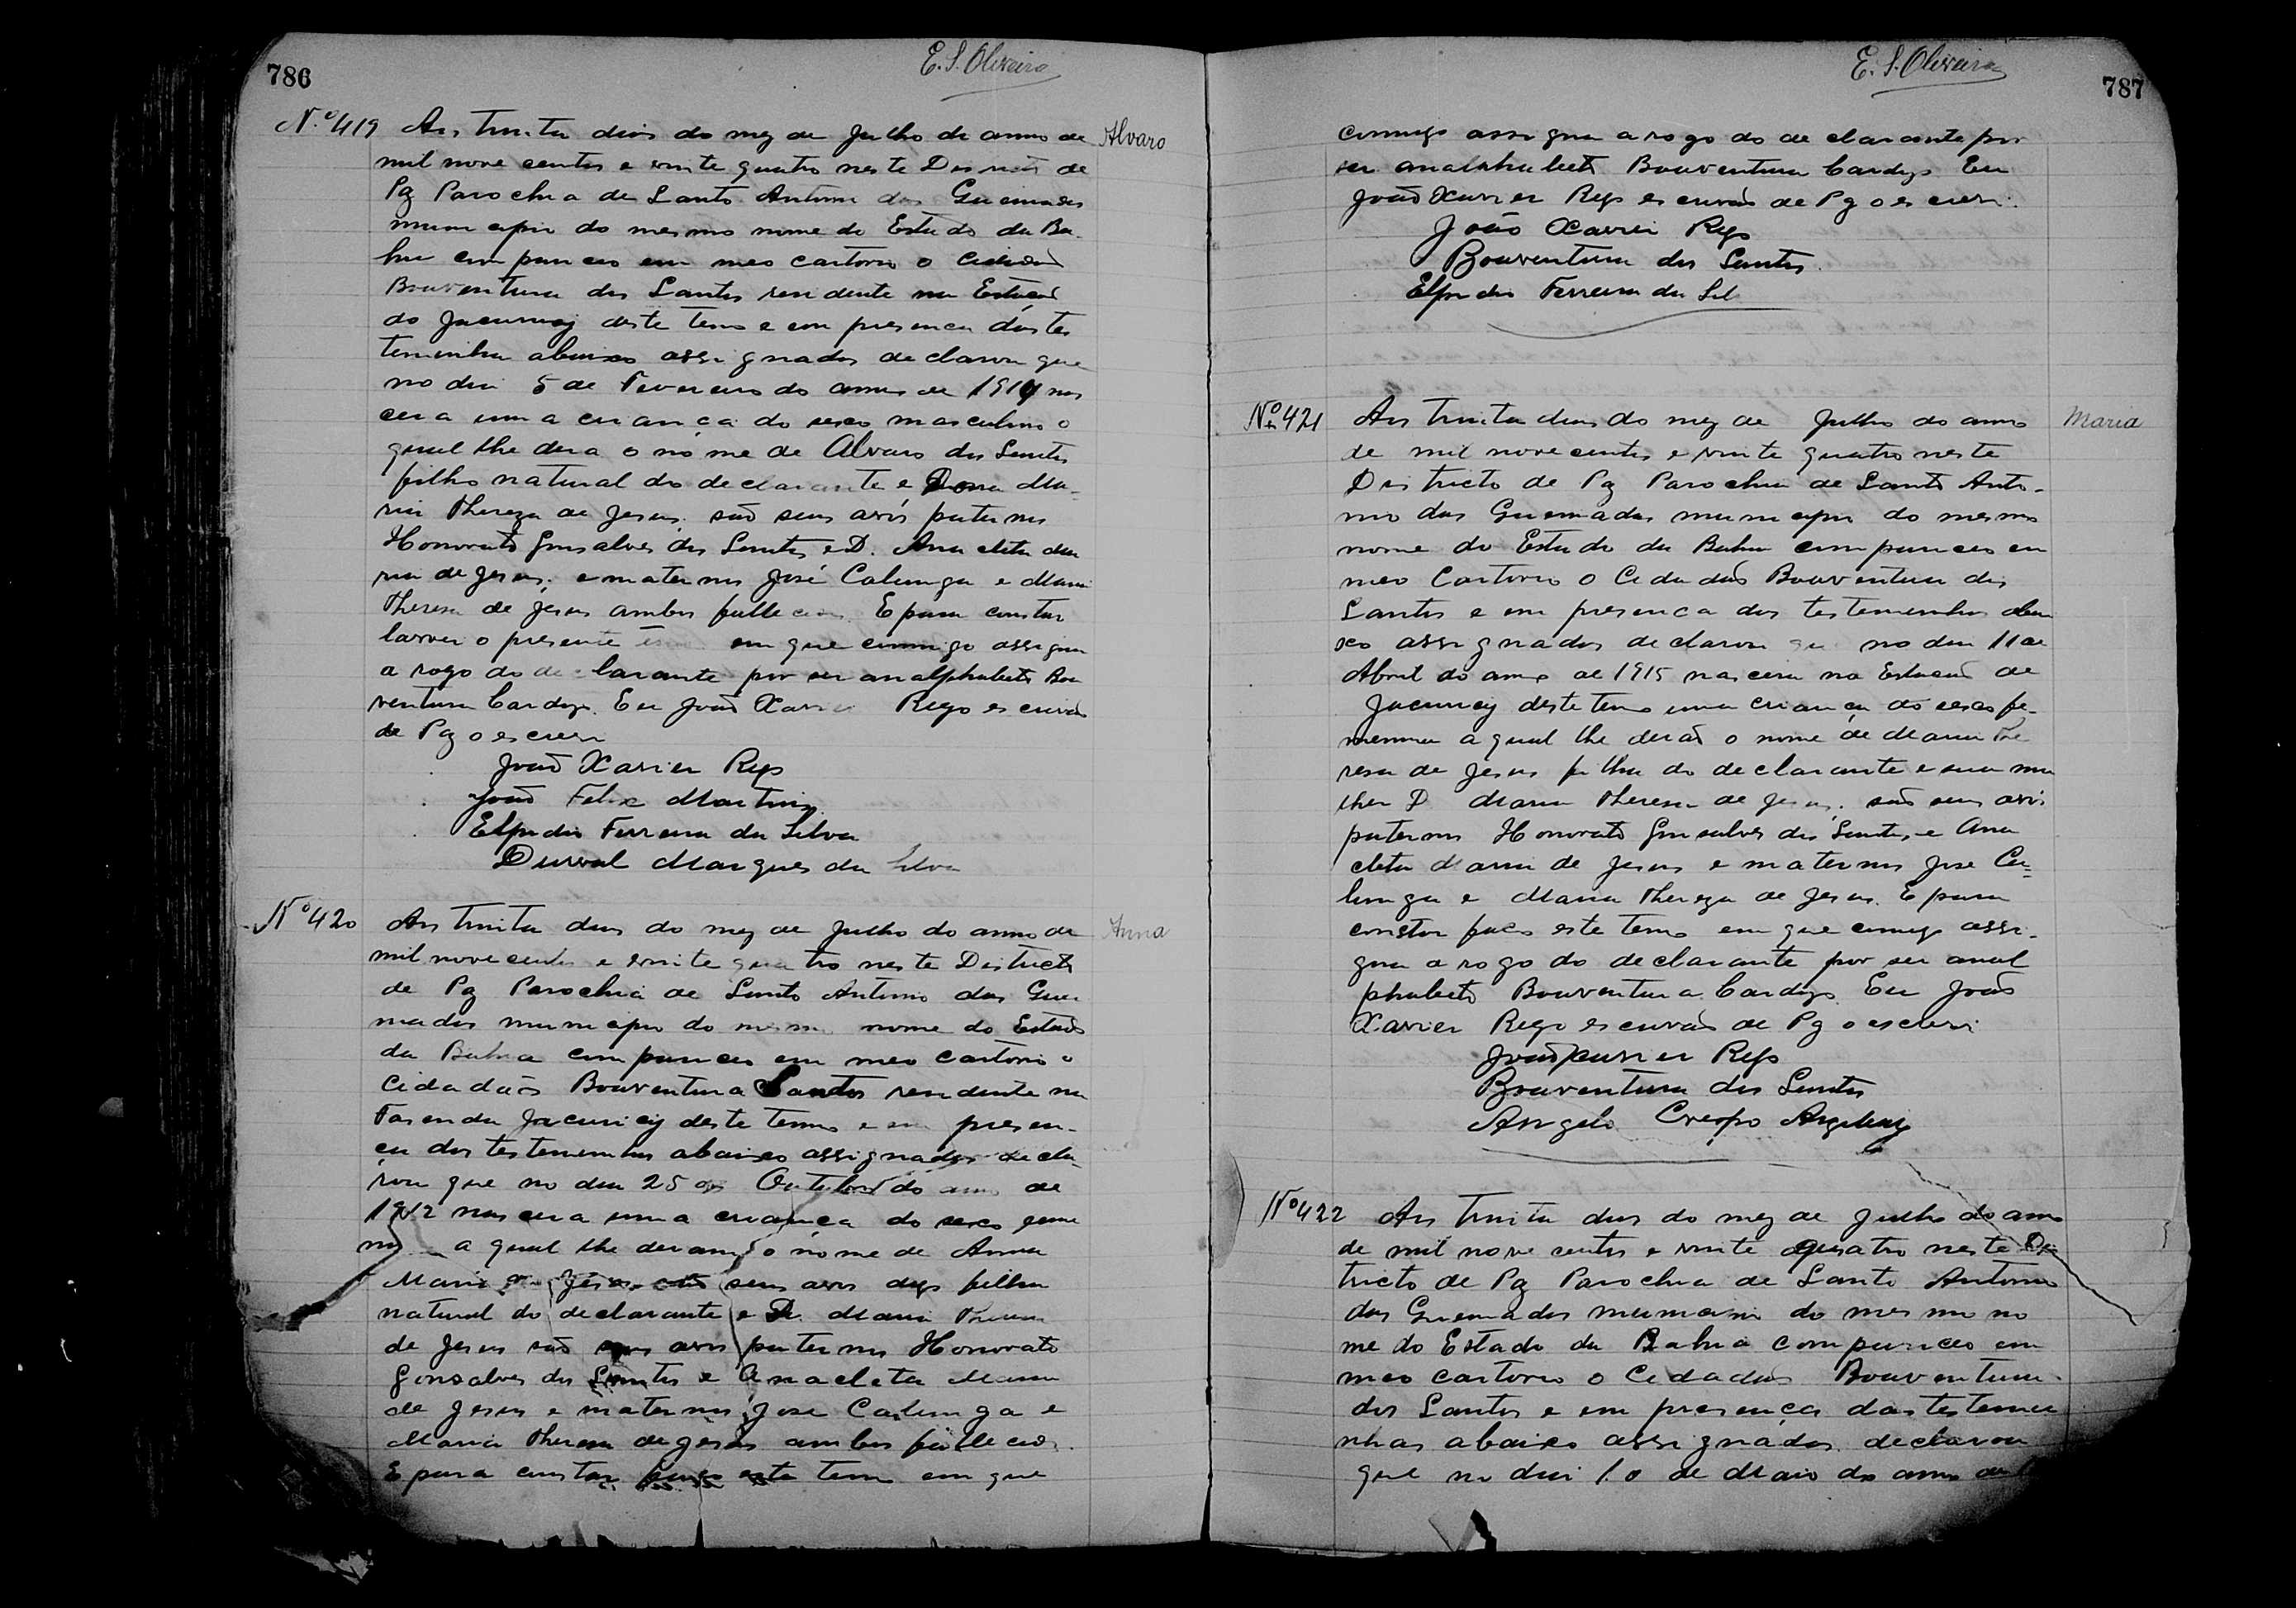 786
E. S. Oliveira
Nº 419 Aos trinta dias do mez de Julho do anno de
Alvaro
mil nove centos e vinte quatro neste Districto de
Pz Parochia de Santo Antonio das Queimadas
municipio do mesmo nome do Estado da Ba-
hia compareceo em meo cartorio o Cidadão
Boaventura dos Santos residente na Estação
do Jacuricy deste termo e em presenca das tes
temunhas abaixo assignados declarou que
no dia 5 de Fevereiro do anno de 1914 nas
cera uma criança do sexo masculino o
qual lhe dera o nome de Alvaro dos Santos
filho natural do declarante e Dona Ma-
ria Thereza de Jesus. são seus avós paternos
Honorato Gonsalves dos Santos e D. Ana cleta Ma
ria de Jesus. e maternos José Calunga e Maria
Theresa de Jesus ambos fallecidos E para constar
lavrei o presente em que commigo assigna
a rogo do declarante por ser analphabeto Boa
ventura Cardozo. Eu João Xavier Rego escrivão
de Pz o escrevi
João Xavier Rego
João Felix Martins
Elpidio Ferreira da Silva
Durval Marques da Silva
Nº 420 Aos trinta dias do mez de Julho do anno de
Anna
mil nove centos e vinte quatro neste Districto
de Pz Parochia de Santo Antonio das Quei
madas municipio do mesmo nome do Estado
da Bahia compareceo em meo cartorio o
Cidadão Boaventura Santos residente na
Fasenda Jacuricy deste termo e em presen-
ça das testemunhas abaixo assignados decla-
rou que no dia 25 de Outubro do anno de
1912 nascera uma criança do sexo
a qual lhe deram o nome de Anna
Maria de Jesus são seus avos digo filha
natural do declarante e D. Maria Theresa
de Jesus são seus avos paternos Honorato
Gonsalves dos Santos e Anacleta Maria
de Jesus e maternos José Calunga e
Maria Theresa de Jesus ambos fallecidos.
E para constar faço este termo em que
E. S. Oliveira
787
comigo assigna a rogo do declarante por
ser analphabeto Boaventura Cardozo Eu
João Xavier Rego escrivão de Pz o escrevi.
João Xavier Rego
Boaventura dos Santos
Elpidio Ferreira da Sil
Nº 421 Aos trinta dias do mez de Julho do anno
Maria
de mil nove centos e vinte quatro neste
Districto de Pz Parochia de Santo Anto-
nio das Queimadas municipio do mesmo
nome do Estado da Bahia compareceo em
meo Cartorio o Cidadão Boaventura dos
Santos e em presenca das testemunhas abai
xo assignados declarou que no dia 11 de
Abril do anno de 1915 nascera na Estacão de
Jacuricy deste termo uma criança do sexo fe-
menina a qual lhe derão o nome de Maria The
resa de Jesus filha do declarante e sua mu
lher D Maria Theresa de Jesus. são seus avós
paternos Honorato Gonsalves dos Santos e Ana
cleta Maria de Jesus e maternos José Ca-
lunga e Maria Thereza de Jesus. E para
constar faço este termo em que comigo assi-
gna a rogo do declarante por ser anal
phabeto Boaventura Cardozo. Eu João
Xavier Rego escrivão de Pz o escrevi
João Xavier Rego
Boaventura dos Santos
Angelo Crespo
Nº 422 Aos trinta dias do mez de Julho do anno
de mil nove centos e vinte quatro neste Dis
tricto de Pz Parochia de Santo Antonio
das Queimadas municipio do mesmo no
me do Estado da Bahia compareceo em
meo cartorio o Cidadão Boaventura
dos Santos e em presença das testemu
nhas abaixo assignados declarou
que no dia 10 de Maio do anno de